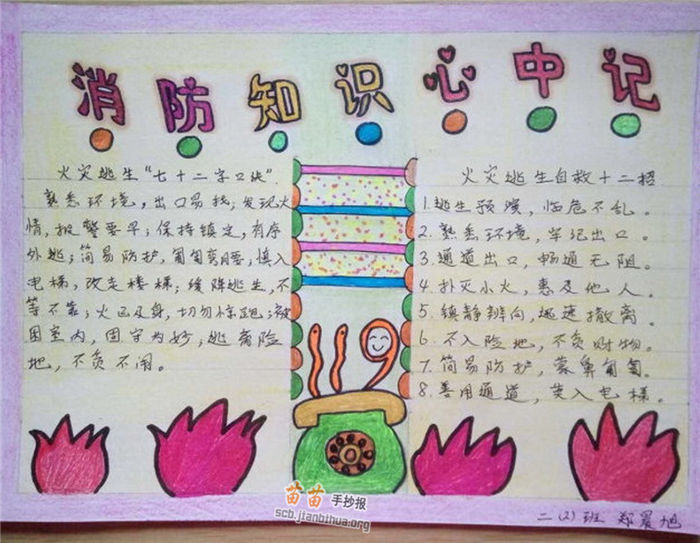 消防知识心中记
火灾逃生"七十二字口诀"
熟悉环境,出口易找;发现火
情,报警要早;保持镇定,有序
外逃;简易防护,匍匐弯腰;慎入
电梯,改走楼梯;缓降逃生,不
等不靠;火已及身,切勿惊跑;被
困室内,固守为妙;逃离险
地,不负不闹。
火灾逃生自救十二招
1.逃生预演,临危不乱。
2.熟悉环境,牢记出口。
3.通道出口,畅通无阻。
4.扑灭小火,惠及他人。
5.镇静辨向,迅速撤离。
6.不入险地,不负财物。
7.简易防护,蒙鼻匍匐。
8.善用通道,莫入电梯。
119
苗苗手抄报
scb.jianbihua.org
二(2)班 郑景旭